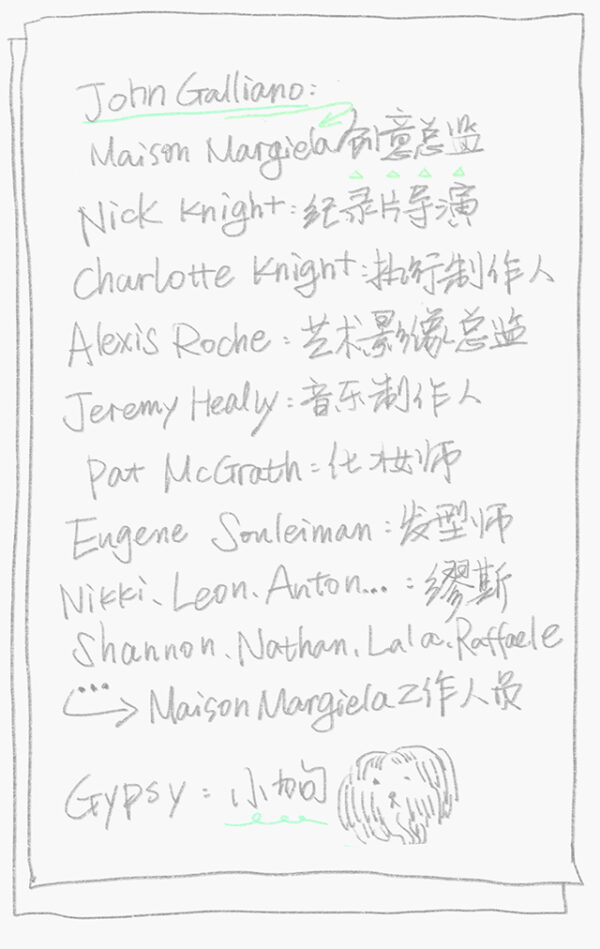 John Galliano:
Maison Margiela创意总监
Nick Knight:纪录片导演
Charlotte Knight:执行制作人
Alexis Roche:艺术影像总监
Jeremy Healy:音乐制作人
Pat McGrath:化妆师
Eugene Souleiman:发型师
Nikki、Leon、Anton...:缪斯
Shannon、Nathan、Lala、Raffaele
...→Maison Margiela工作人员
Gypsy:小狗